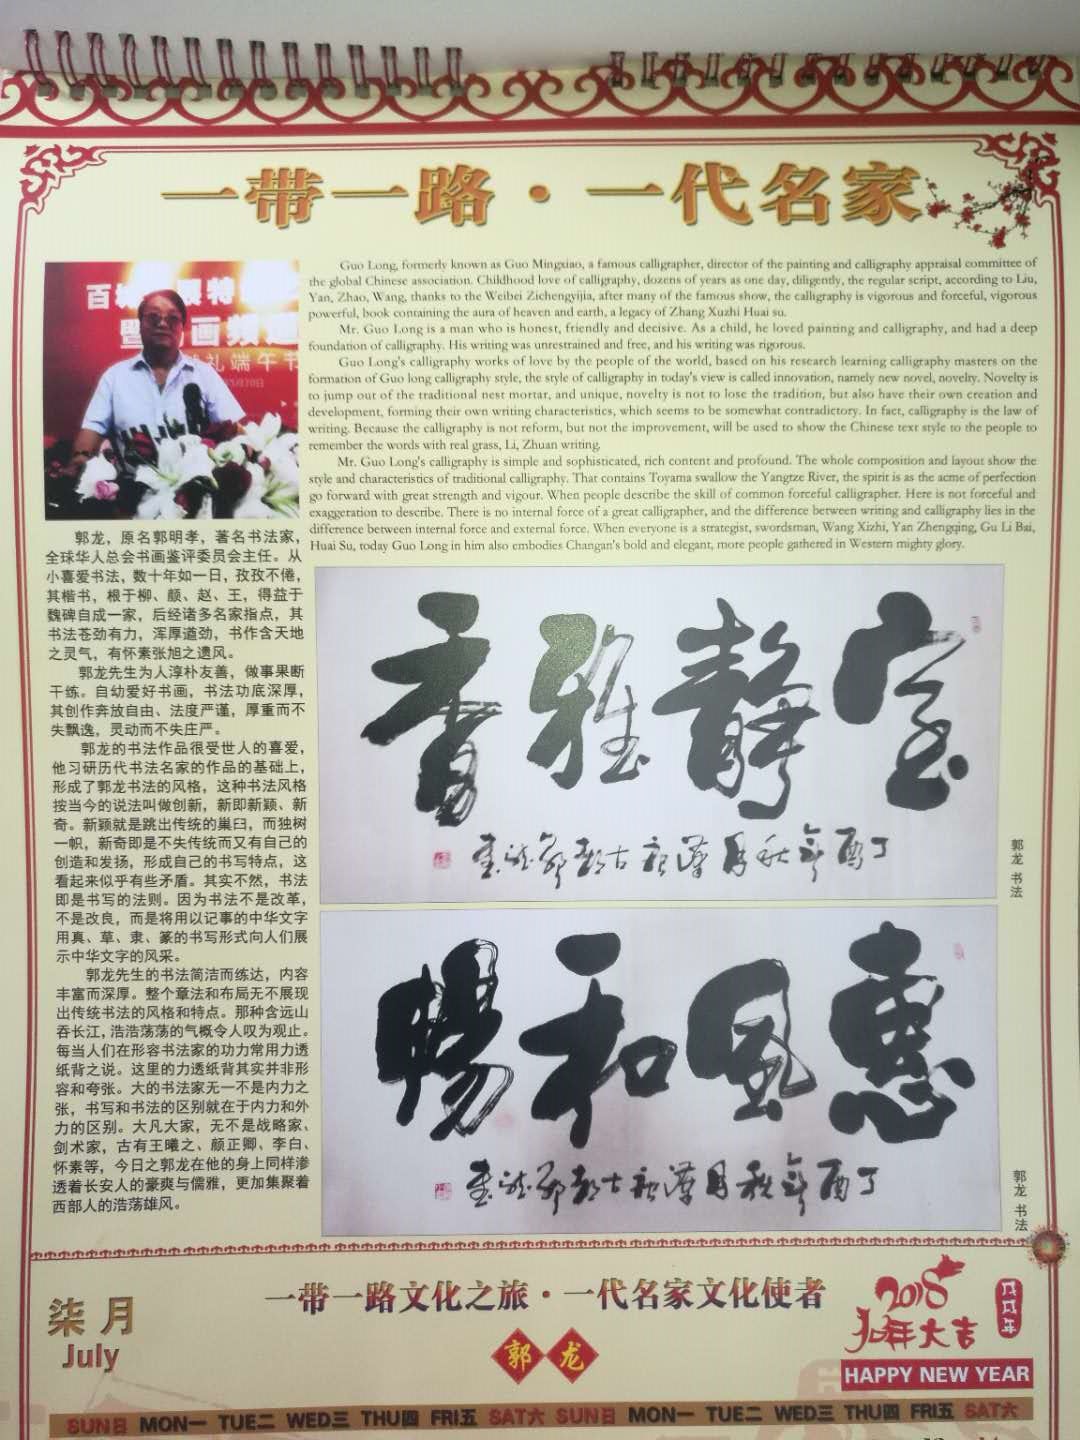 一带一路·一代名家
Guo Long, formerly known as Guo Mingxiao, a famous calligrapher, director of the painting and calligraphy appraisal committee of
the global Chinese association. Childhood love of calligraphy, dozens of years as one day, diligently, the regular script, according to Liu,
Yan, Zhao, Wang, thanks to the Weibei Zichengyijia, after many of the famous show, the calligraphy is vigorous and forceful, vigorous
powerful, book containing the aura of heaven and earth, a legacy of Zhang Xuzhi Huai su.
Mr. Guo Long is a man who is honest, friendly and decisive. As a child, he loved painting and calligraphy, and had a deep
foundation of calligraphy. His writing was unrestrained and free, and his writing was rigorous.
Guo Long's calligraphy works of love by the people of the world, based on his research learning calligraphy masters on the
formation of Guo long calligraphy style, the style of calligraphy in today's view is called innovation, namely new novel, novelty. Novelty is
to jump out of the traditional nest mortar, and unique, novelty is not to lose the tradition, but also have their own creation and
development, forming their own writing characteristics, which seems to be somewhat contradictory. In fact, calligraphy is the law of
writing. Because the calligraphy is not reform, but not the improvement, will be used to show the Chinese text style to the people to
remember the words with real grass, Li, Zhuan writing.
Mr. Guo Long's calligraphy is simple and sophisticated, rich content and profound. The whole composition and layout show the
style and characteristics of traditional calligraphy. That contains Toyama swallow the Yangtze River, the spirit is as the acme of perfection
go forward with great strength and vigour. When people describe the skill of common forceful calligrapher. Here is not forceful and
exaggeration to describe. There is no internal force of a great calligrapher, and the difference between writing and calligraphy lies in the
difference between internal force and external force. When everyone is a strategist, swordsman, Wang Xizhi, Yan Zhengqing, Gu Li Bai,
Huai Su, today Guo Long in him also embodies Changan's bold and elegant, more people gathered in Western mighty glory.
郭龙，原名郭明孝，著名书法家，
全球华人总会书画鉴评委员会主任。从
小喜爱书法，数十年如一日，孜孜不倦，
其楷书，根于柳、颜、赵、王，得益于
魏碑自成一家，后经诸多名家指点，其
书法苍劲有力，浑厚遒劲，书作含天地
之灵气，有怀素张旭之遗风。
郭龙先生为人淳朴友善，做事果断
干练。自幼爱好书画，书法功底深厚，
其创作奔放自由、法度严谨，厚重而不
失飘逸，灵动而不失庄严。
郭龙的书法作品很受世人的喜爱，
他习研历代书法名家的作品的基础上，
形成了郭龙书法的风格，这种书法风格
按当今的说法叫做创新，新即新颖、新
奇。新颖就是跳出传统的巢臼，而独树
一帜，新奇即是不失传统而又有自己的
创造和发扬，形成自己的书写特点，这
看起来似乎有些矛盾。其实不然，书法
即是书写的法则。因为书法不是改革，
不是改良，而是将用以记事的中华文字
用真、草、隶、篆的书写形式向人们展
示中华文字的风采。
郭龙先生的书法简洁而练达，内容
丰富而深厚。整个章法和布局无不展现
出传统书法的风格和特点。那种含远山
吞长江，浩浩荡荡的气概令人叹为观止。
每当人们在形容书法家的功力常用力透
纸背之说。这里的力透纸背其实并非形
容和夸张。大的书法家无一不是内力之
张，书写和书法的区别就在于内力和外
力的区别。大凡大家，无不是战略家、
剑术家，古有王曦之、颜正卿、李白、
怀素等，今日之郭龙在他的身上同样渗
透着长安人的豪爽与儒雅，更加集聚着
西部人的浩荡雄风。
室静雅香
丁酉年秋月汉钦古都郭龙书
郭龙 书法
惠风和畅
丁酉年秋月汉钦古都郭龙书
郭龙 书法
一带一路文化之旅·一代名家文化使者
郭龙
柒月
July
2018
狗年大吉
HAPPY NEW YEAR
SUN日 MON一 TUE二 WED三 THU四 FRI五 SAT六 SUN日 MON一 TUE二 WED三 THU四 FRI五 SAT六